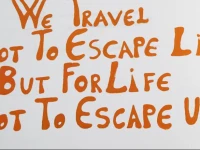 We Travel
ot To Escape Li
But For Life
ot To Escape U